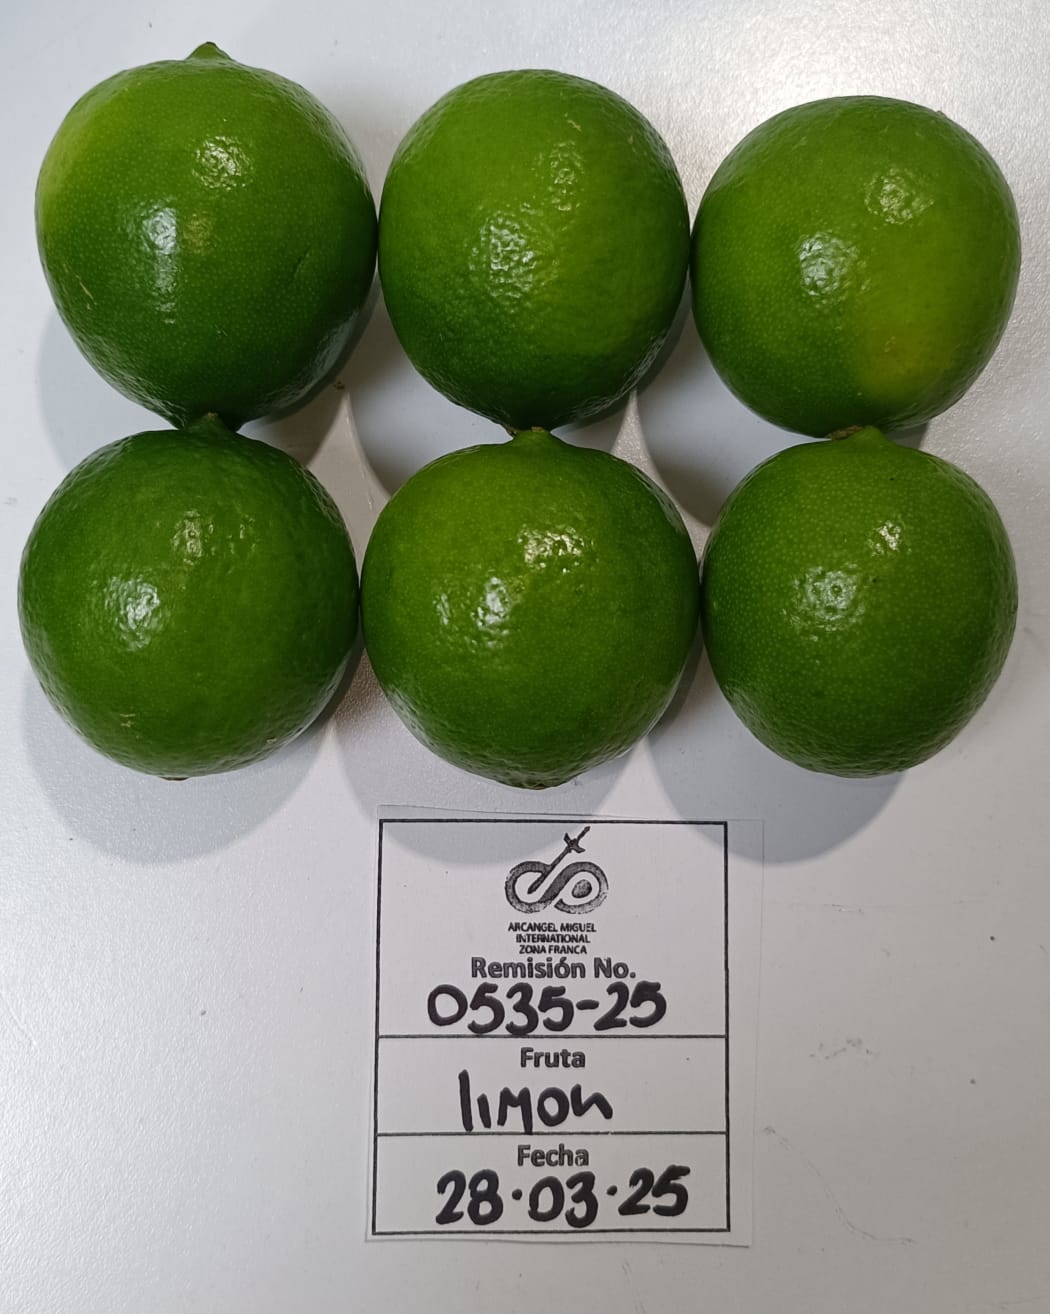 ARCANGEL MIGUEL
INTERNATIONAL
ZONA FRANCA
Remisión No.
0535-25
Fruta
limon
Fecha
28.03.25